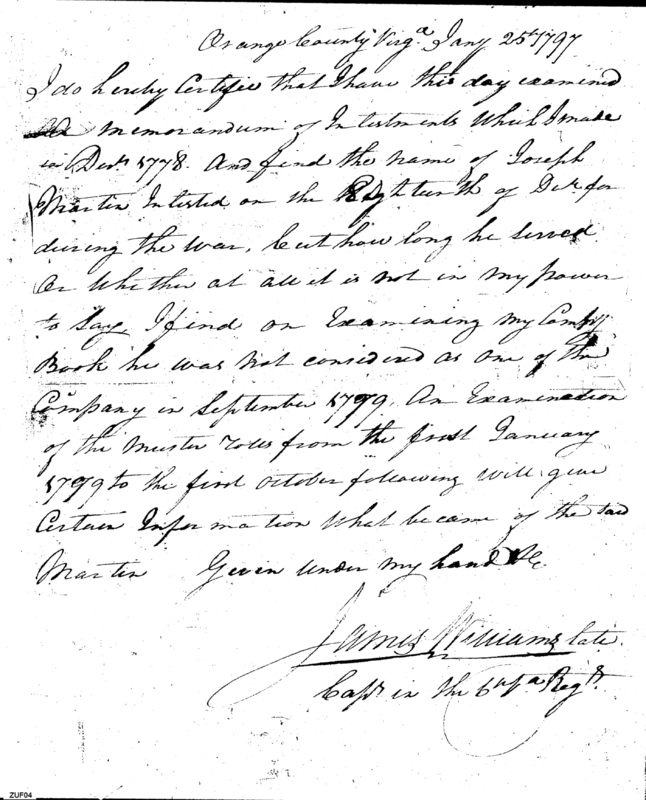 Orange County Virg.a Jany 25th 1797
I do hereby Certifie that I have this day examined
Memorandum of Inlistments Which I made
in Decr 1778. And find the name of Joseph
Martin Inlisted on the Eighteenth of Decr for
during the War, but how long he served
Or Whither at all it is not in my power
to Say, I find on Examining my Compy
Book he was Not considered as one of the
Company in September 1779. An Examination
of the Muster roles from the first January
1779 to the first October following will give
Certain Information What became of the said
Martin Given under my hand &c
James Williams late
Capt in the 6 Va Regt.
ZUF04